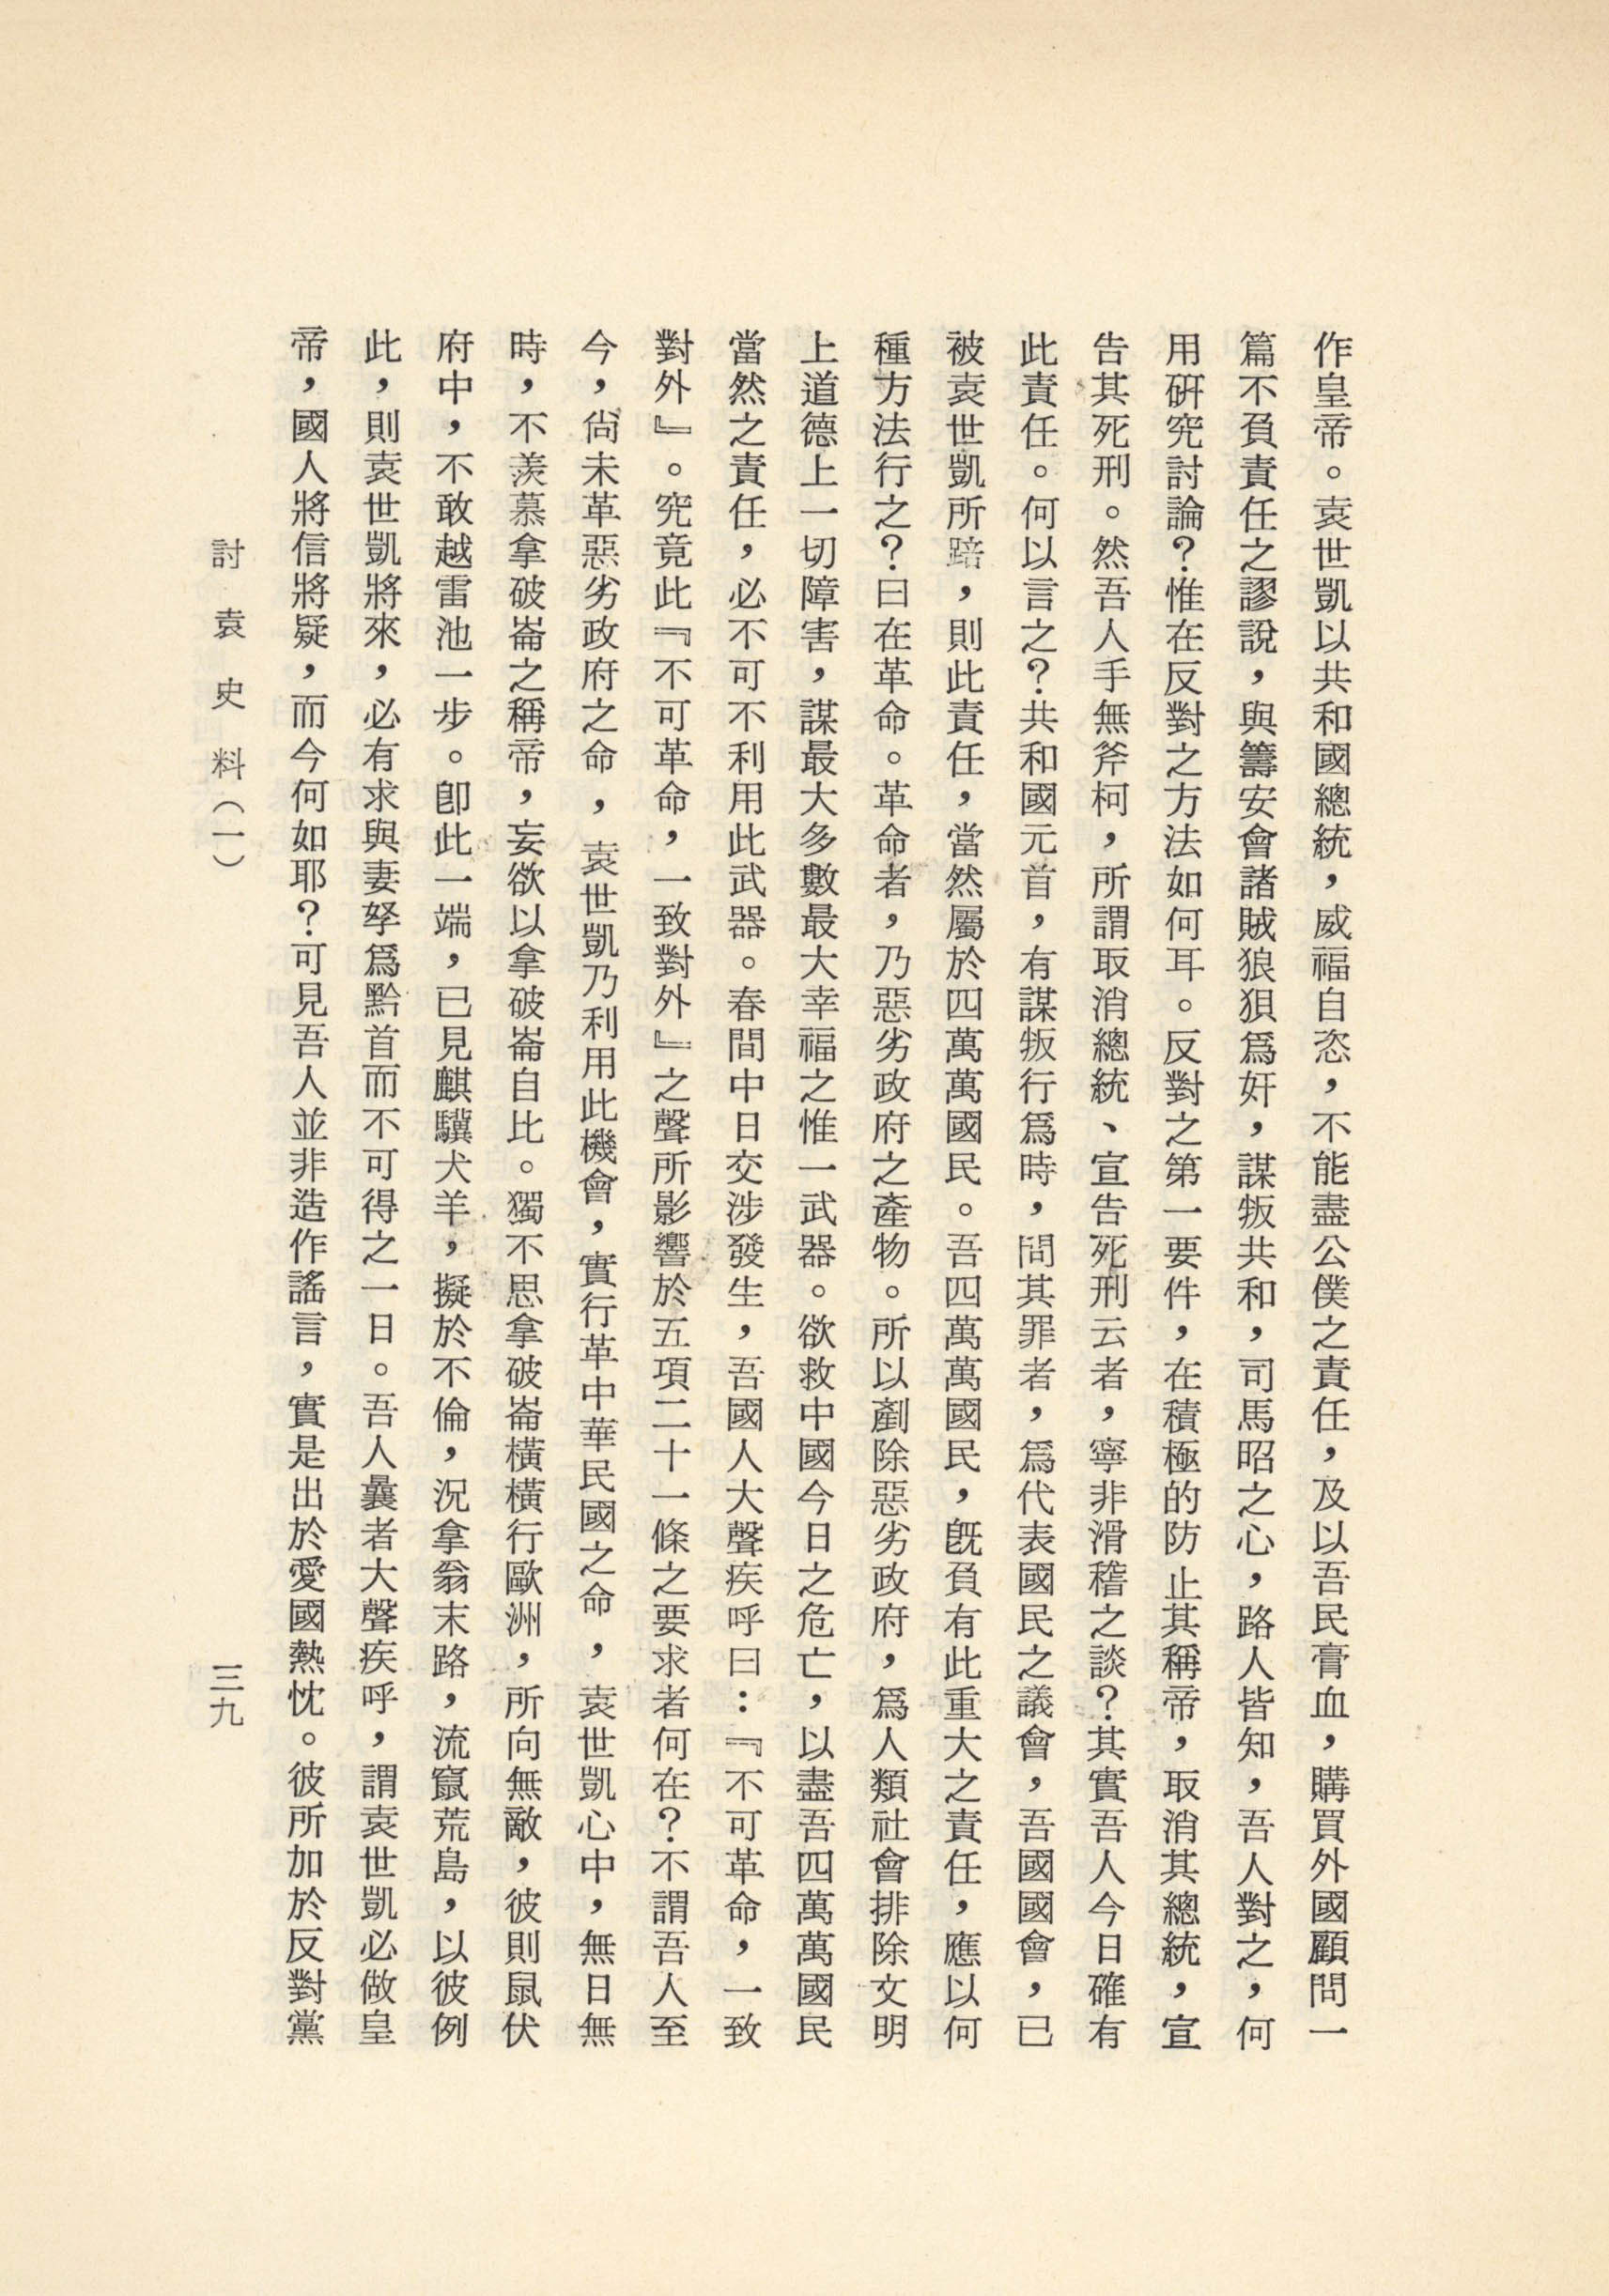 作皇帝。袁世凱以共和國總統，威福自恣，不能盡公僕之責任，及以吾民膏血，購買外國顧問一
篇不負責任之謬說，與籌安會諸賊狼狽爲奸，謀叛共和，司馬昭之心，路人皆知，吾人對之，何
用研究討論？惟在反對之方法如何耳。反對之第一要件，在積極的防止其稱帝，取消其總統，宣
告其死刑。然吾人手無斧柯，所謂取消總統、宣告死刑云者，寧非滑稽之談？其實吾人今日確有
此責任。何以言之？共和國元首，有謀叛行爲時，問其罪者，爲代表國民之議會，吾國國會，已
被袁世凱所踣，則此責任，當然屬於四萬萬國民。吾四萬萬國民，旣負有此重大之責任，應以何
種方法行之？曰在革命。革命者，乃惡劣政府之產物。所以剷除惡劣政府，爲人類社會排除文明
上道德上一切障害，謀最大多數最大幸福之惟一武器。欲救中國今日之危亡，以盡吾四萬萬國民
當然之責任，必不可不利用此武器。春間中日交涉發生，吾國人大聲疾呼曰：『不可革命，一致
對外』。究竟此『不可革命，一致對外』之聲所影響於五項二十一條之要求者何在？不謂吾人至
今，尙未革惡劣政府之命，袁世凱乃利用此機會，實行革中華民國之命，袁世凱心中，無日無
時，不羨慕拿破崙之稱帝，妄欲以拿破崙自比。獨不思拿破崙橫橫行歐洲，所向無敵，彼則鼠伏
府中，不敢越雷池一步。卽此一端，已見麒驥犬羊，擬於不倫，況拿翁末路，流竄荒島，以彼例
此，則袁世凱將來，必有求與妻孥爲黔首而不可得之一日。吾人曩者大聲疾呼，謂袁世凱必做皇
帝，國人將信將疑，而今何如耶？可見吾人並非造作謠言，實是出於愛國熱忱。彼所加於反對黨
討袁史料（一）
三九